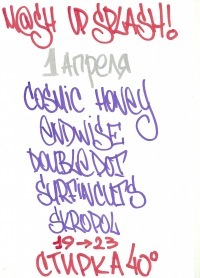 M@SH UP SPLASH!
1 апреля
COSMIC HONEY
ENDWISE
DOUBLE DOT
SURFINCUTS
SKROPOL
19→23
СТИРКА 40°